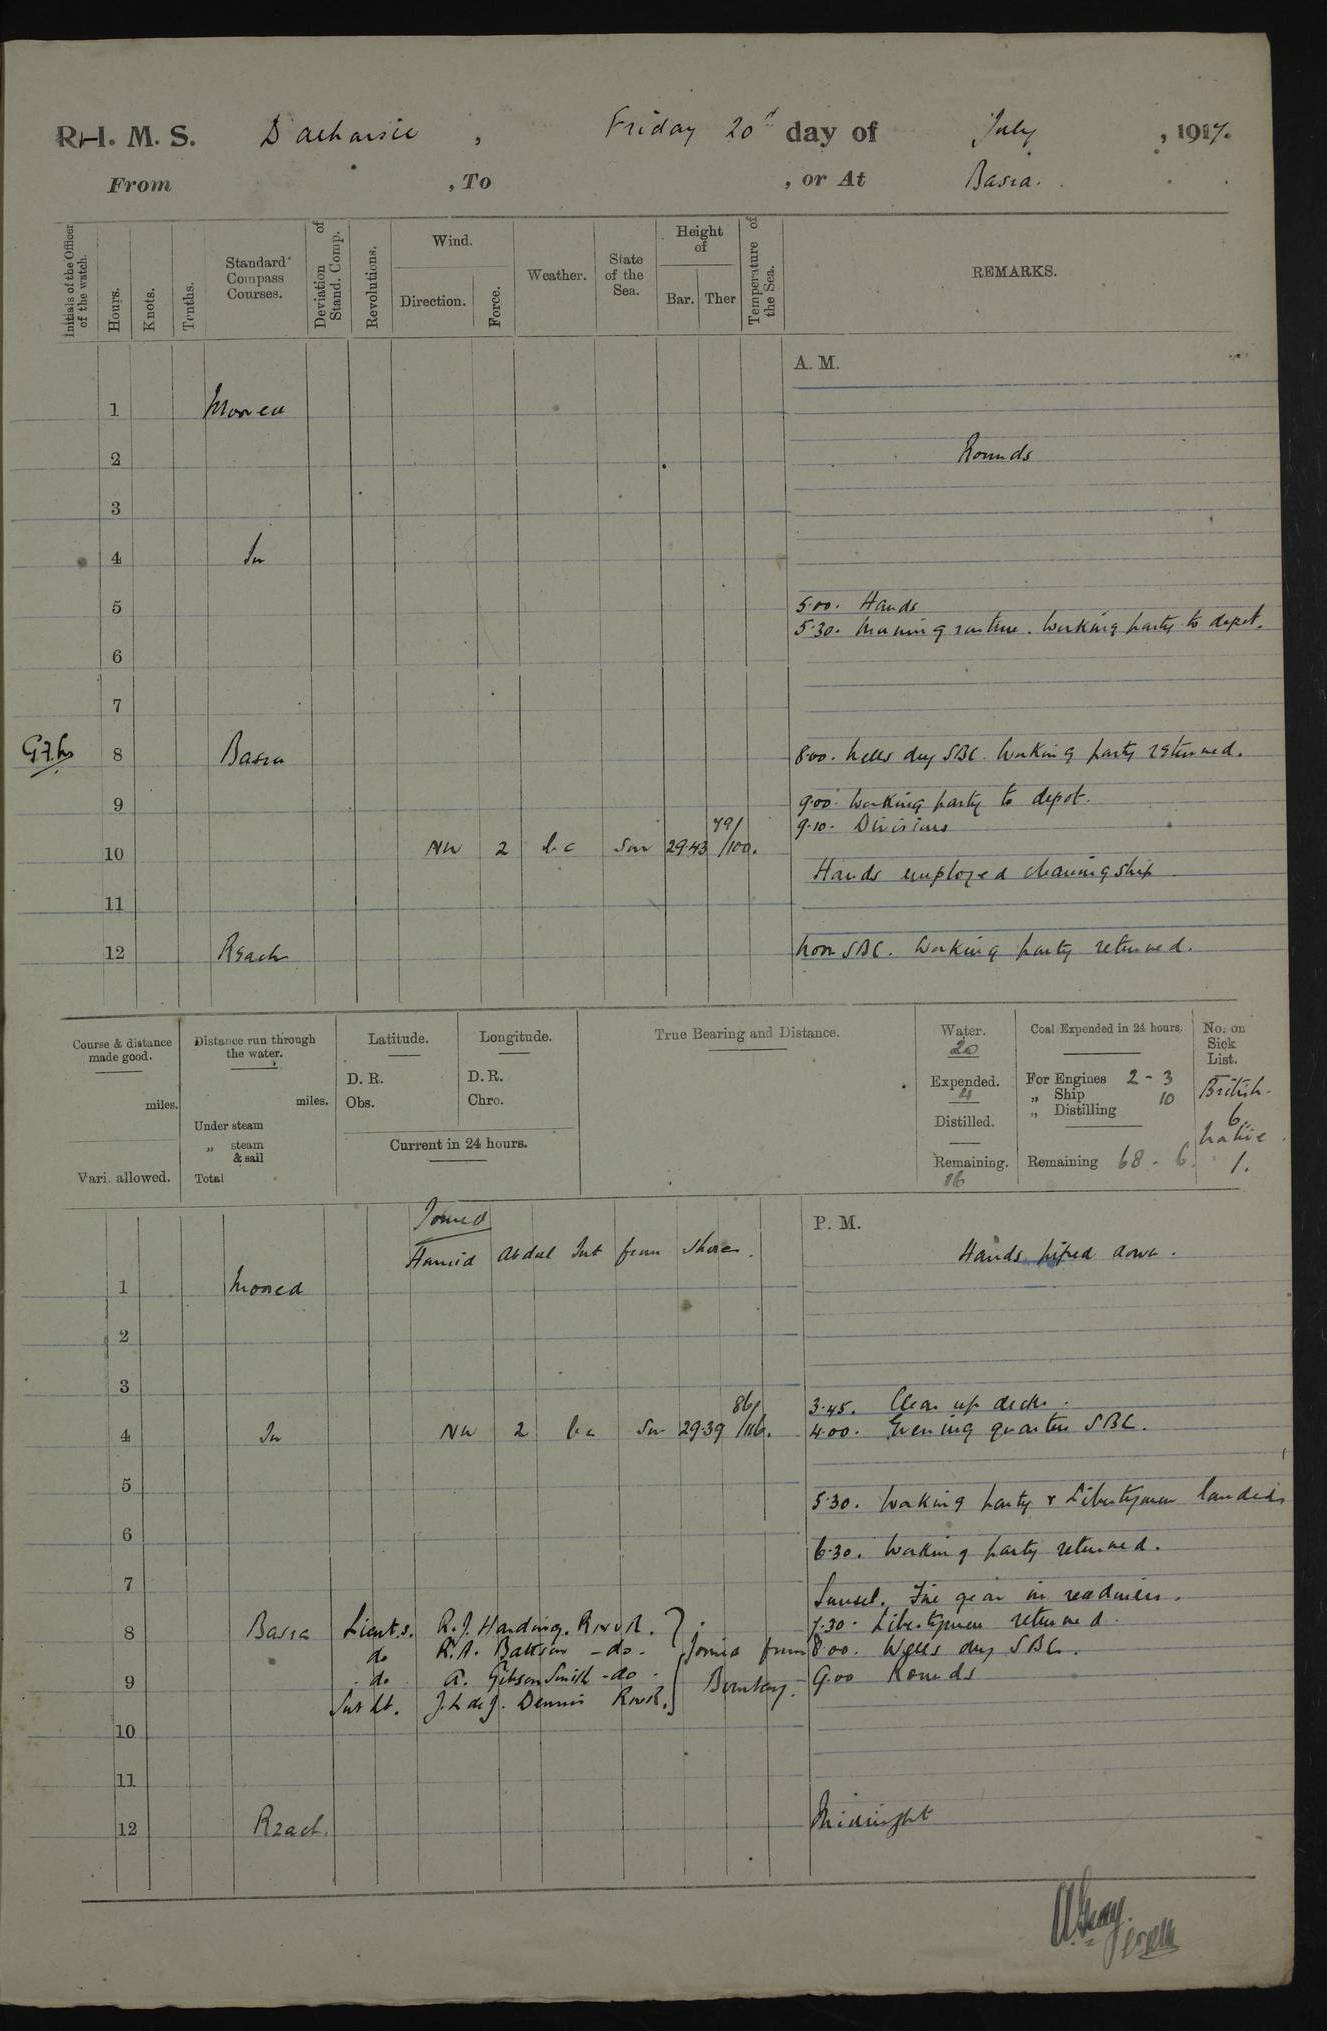 R. I. M. S. Dalhousie, Friday 20th day of July, 1917.
From , To , or At Basra.
Initials of the Officer of the watch.
Hours.
Knots.
Tenths.
Standard Compass Courses.
Deviation of Stand. Comp.
Revolutions.
Wind.
Direction.
Force.
Weather.
State of the Sea.
Height of
Bar.
Ther
Temperature of the Sea.
REMARKS.
A. M.
1 Moored
2 Rounds
3
4 In
5 5.00. Hands
5.30. Morning routine. Working party to depot.
6
7
8 Basra 8.00. Wells dry SBC. Working party returned.
9 9.00. Working party to depot.
9.10. Divisions
10 NW 2 bc Sm 29.43 79/100.
Hands employed cleaning ship
11
12 Reach Noon SBC. Working party returned.
Course & distance made good.
miles.
Vari. allowed.
Distance run through the water.
miles.
Under steam
„ steam & sail
Total
Latitude.
D. R.
Obs.
Longitude.
D. R.
Chro.
Current in 24 hours.
True Bearing and Distance.
Water.
20
Expended.
4
Distilled.
Remaining.
16
Coal Expended in 24 hours.
For Engines 2 - 3
„ Ship 10
„ Distilling
Remaining 68 - 6.
No. on Sick List.
British.
6
Native
1.
P. M.
Joined
Hamid Abdul Int from shore.
Hands piped down.
1 Moored
2
3
3.45. Clear up decks.
4 In NW 2 bc Sm 29.39 86/116. 4.00. Evening quarters SBC.
5
5.30. Working party & Libertymen landed.
6
6.30. Working party returned.
7
Sunset. Fire gear in readiness.
8 Basra Lieuts. R. J. Harding. RNVR. 7.30. Libertymen returned.
do R. A. Battson -do- Joined from 8.00. Wells dry SBC.
9 do A. Gibson Smith -do- Bombay. 9.00 Rounds
Sub Lt. J. L. de J. Dennis RNVR.
10
11
12 Reach. Midnight